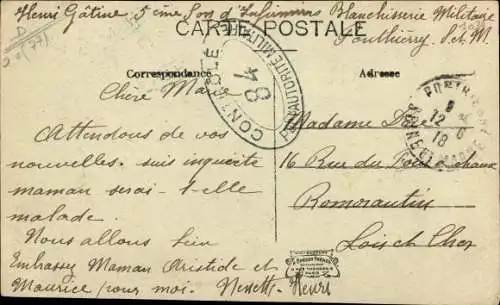 Henri Gâtine 5ème Son d'Infirmiers Blanchisserie Militaire
CARTE POSTALE
Ponthierry S. et M.
Correspondance
Adresse
CONTRÔLE
PAR AUTORITÉ MILITAIRE
84
PONTHIERRY
9
12 6
18
Chère Marie
Attendons de vos
nouvelles. suis inquiète
maman serai-t-elle
malade.
Nous allons bien
Embrassez Maman Aristide et
Maurice pour moi. Henri
Madame
16 Rue du Four à chaux
Romorantin
Loir et Cher